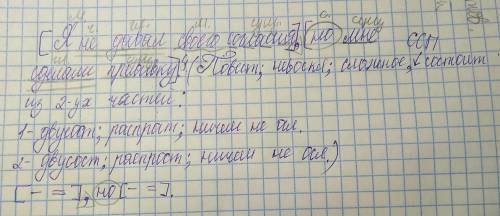 [Я не давал своего согласия], [но мне ССП
сделали прививку].(Повест; невоскл; сложное, состоит
из 2-ух частей:
1- двусост; распрост; ничем не осл.
2- двусост; распрост; ничем не осл.)
[- =], но [- =].